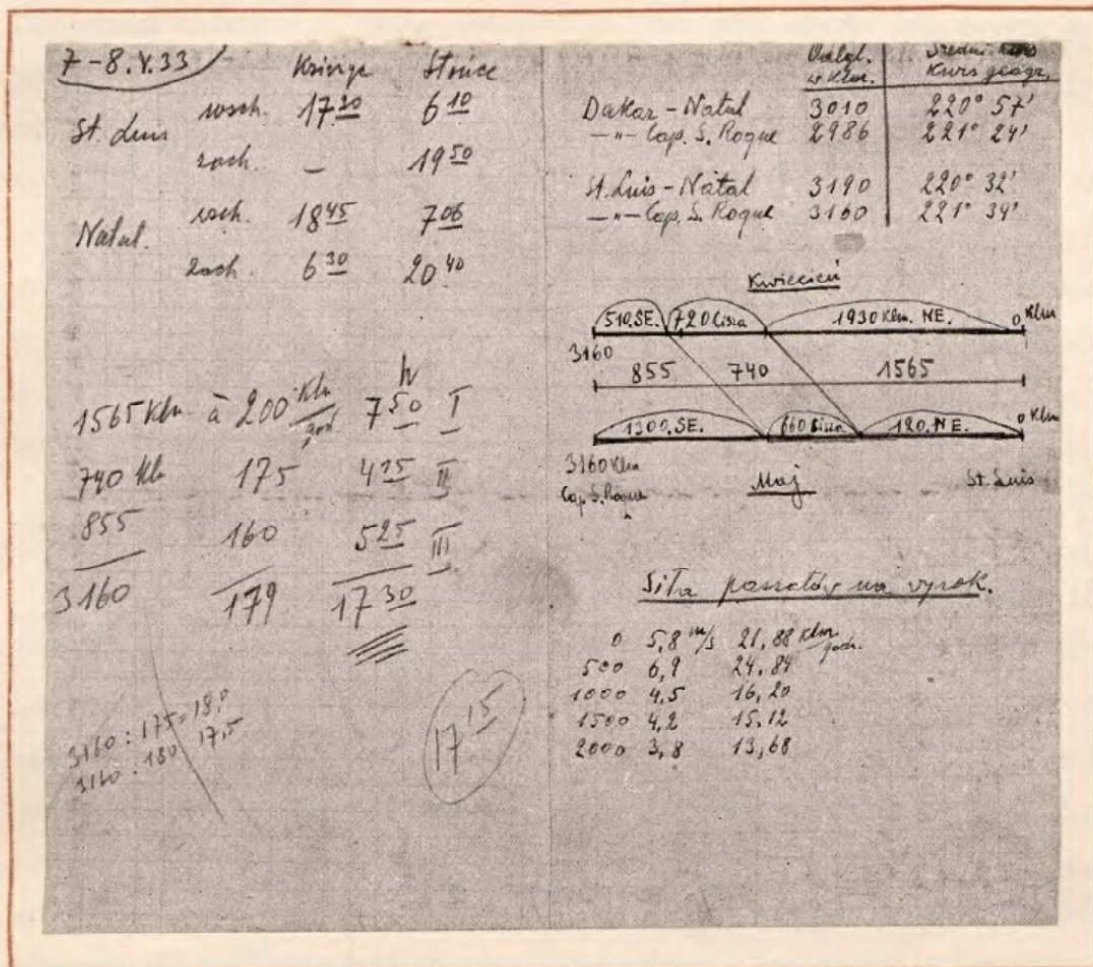 7-8.V.33
Księżyc Słońce
St. Luis wsch. 17 30 6 10
zach. — 19 50
Natal. wsch. 18 45 7 06
zach. 6 30 20 40
1565 Klm à 200 Klm/god. 7 50 h I
740 Kl 175 4 15 II
855 160 5 25 III
3160 179 17 30
3160 : 175 = 18,0
3160 : 180 17,5
17 15
Odległ. w Klm. Kurs geogr.
Dakar - Natal 3010 220° 57'
—"— Cap. S. Roque 2986 221° 24'
St. Luis - Natal 3190 220° 32'
—"— Cap. S. Roque 3160 221° 34'
Kwiecień
510. SE. 720 Cisza 1930 Klm. NE. 0 Klm
3160
855 740 1565
1300. SE. 660 Cisza 120. NE. 0 Klm
3160 Klm Maj St. Luis
Cap. S. Roque
Siła passatów na wysok.
0 5,8 m/s 21,88 Klm/godz.
500 6,9 24,84
1000 4,5 16,20
1500 4,2 15,12
2000 3,8 13,68